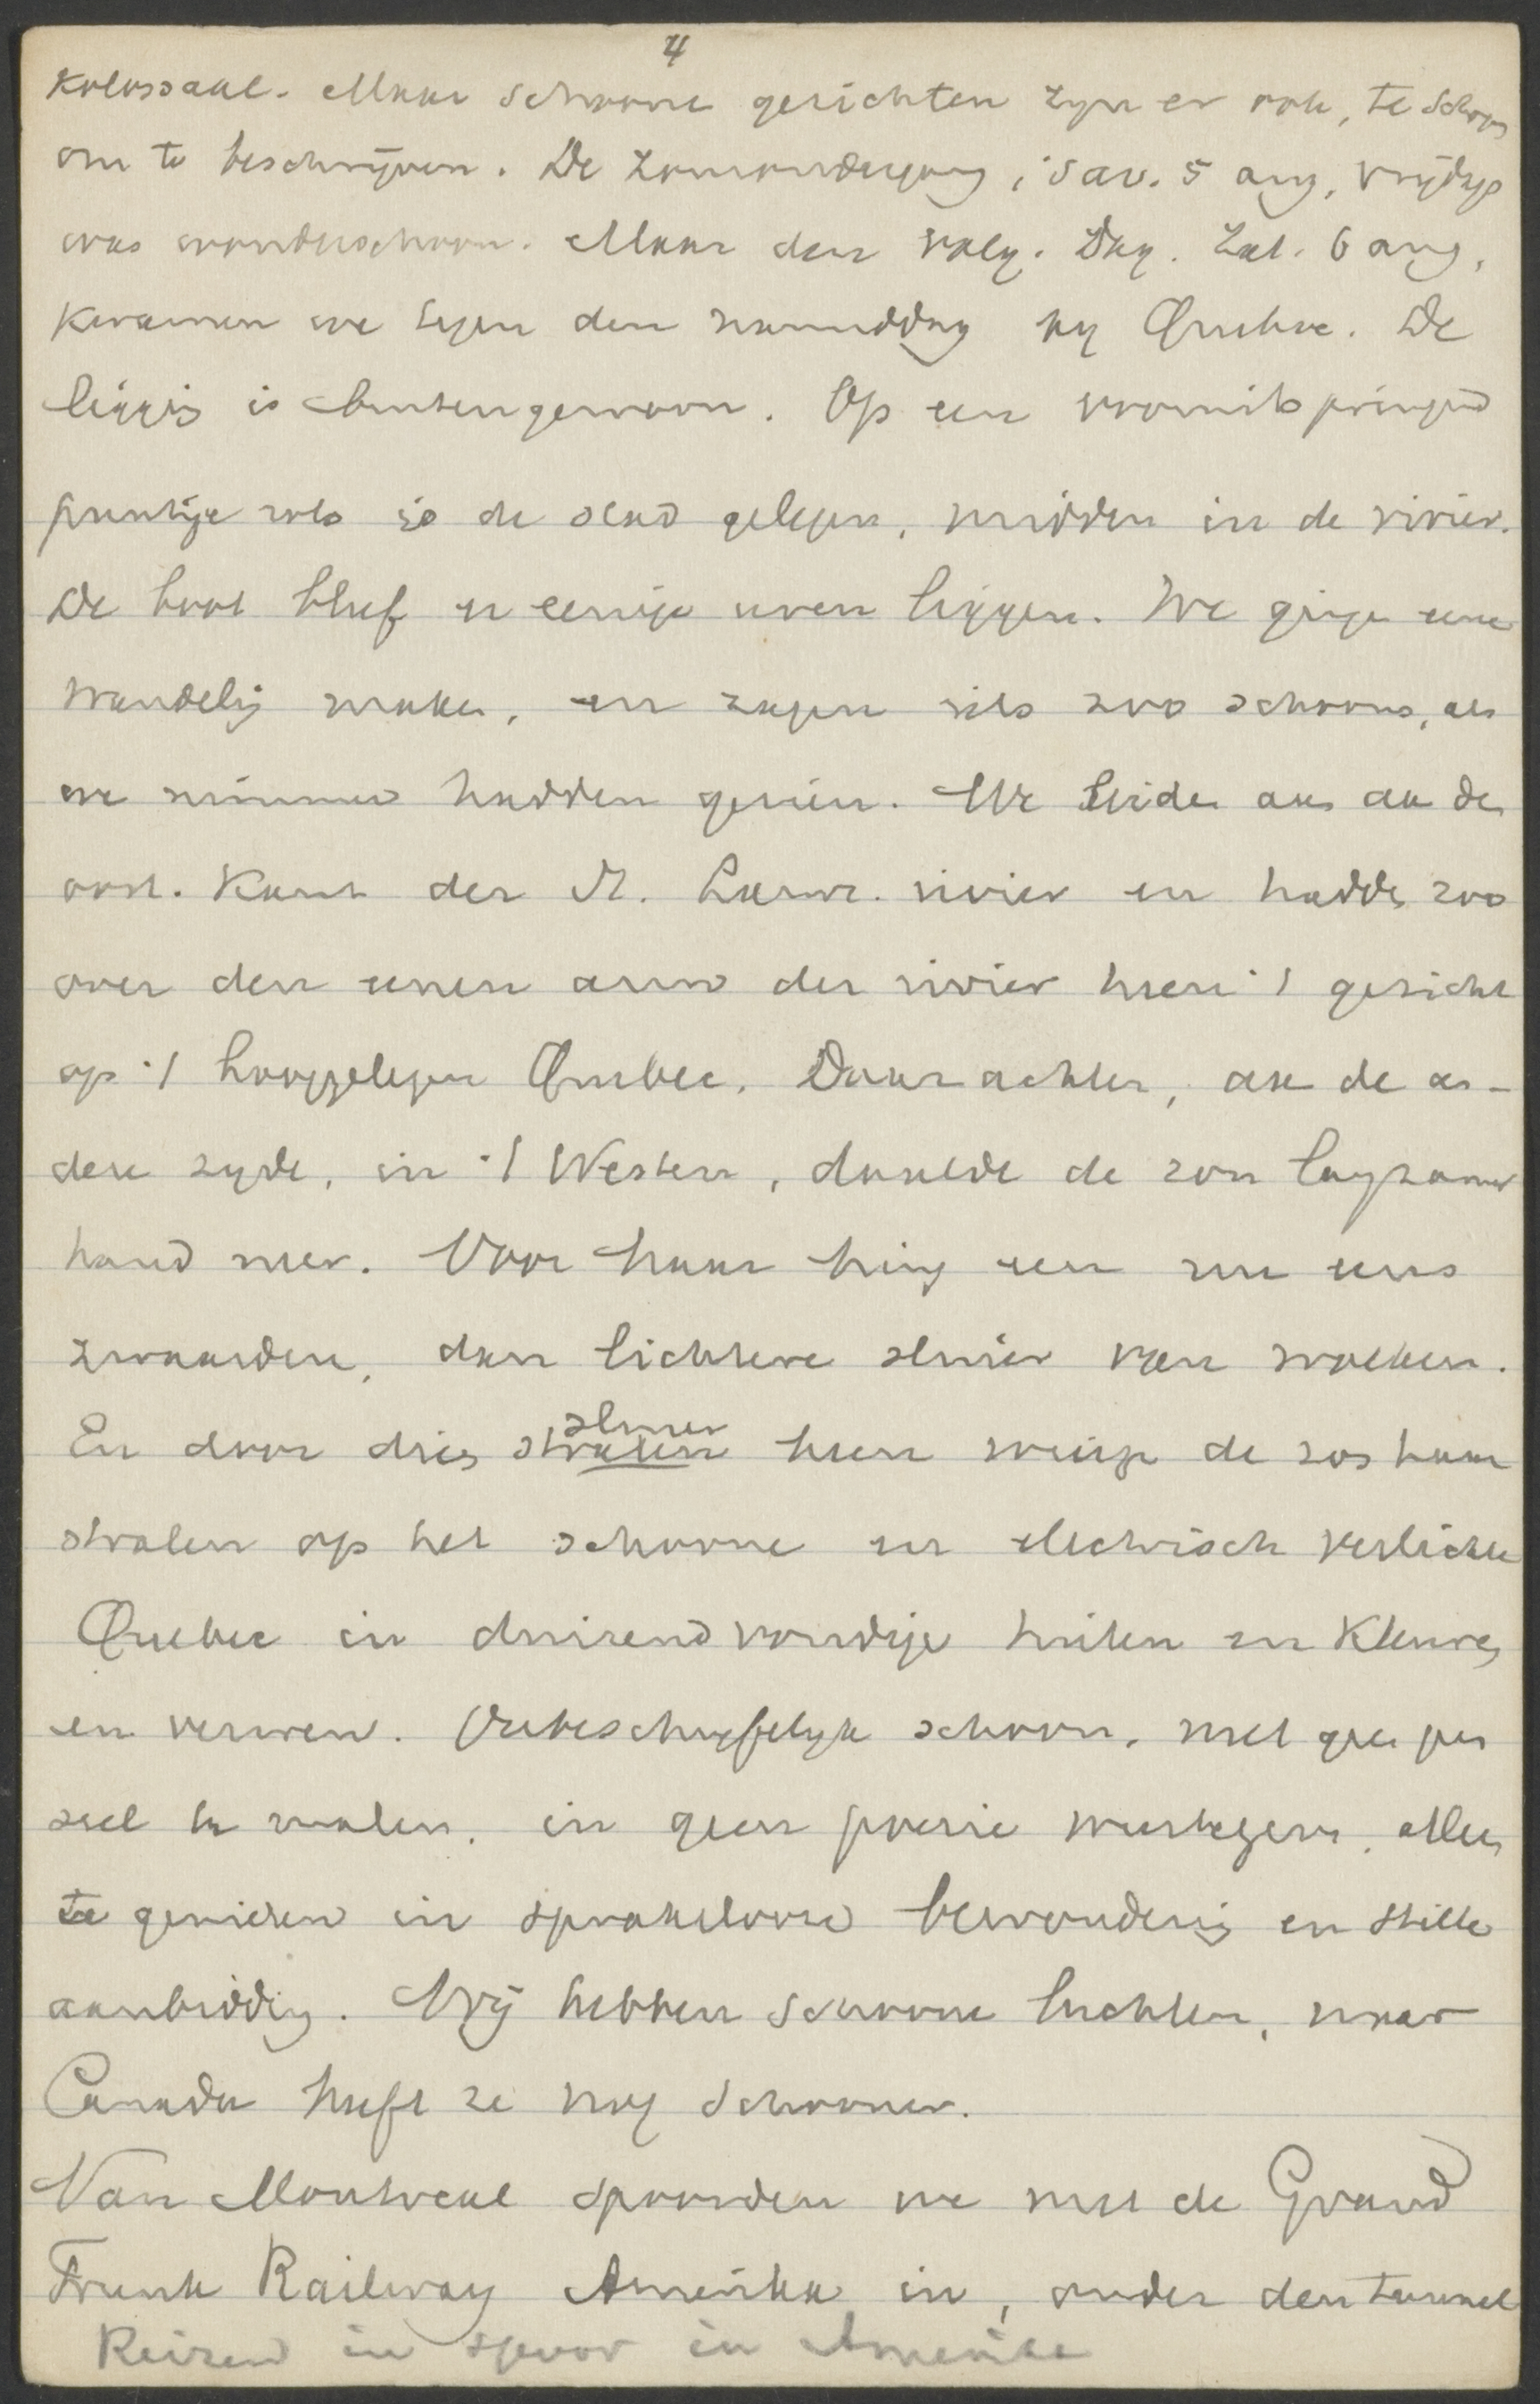 4
Kolossaal. Maar schoone gezichten zyn er ook, te schoon
om te beschrijven. De zonsondergang, 's av. 5 aug, vrijdag
was wonderschoon. Maar den volg. dag. Zat. 6 aug,
kwamen we tegen den namiddag by Quebec. De
liggig is buitengewoon. Op een vooruitspringend
puntje rots is de stad gelegen, midden in de rivier.
De boot bleef er eenige uren liggen. We ginge eene
wandelig maken, en zagen iets zoo schoons, als
we nimmer hadden gezien. We leiden aan aan de
oost. Kant der St. Lawr. rivier en hadde zoo
over den eenen arm der rivier heen 't gezicht
op 't hooggelegen Quebec. Daar achter, aan de an-
dere zyde, in 't Westen, daalde de zon langzamer
hand neer. Voor haar hing een nu eens
zwaarder, dan lichtere sluier van wolken.
En door dries stralen sluier heen wierp de zon haar
stralen op het schoone en electrisch verlichte
Quebec in duizendvoudige tinten en kleuren
en verwen. Onbeschryfelyk schoon, met geen pen
seel te malen, in geen poezie weertegeve, alleen
te genieten in sprakelooze bewonderig en stille
aanbiddig. Wij hebben schoone luchten, maar
Canada heeft ze nog schooner.
Van Montreal spoorden we met de Grand
Trunk Railway Amerika in, onder den tunnel
Reizen in spoor in Amerika